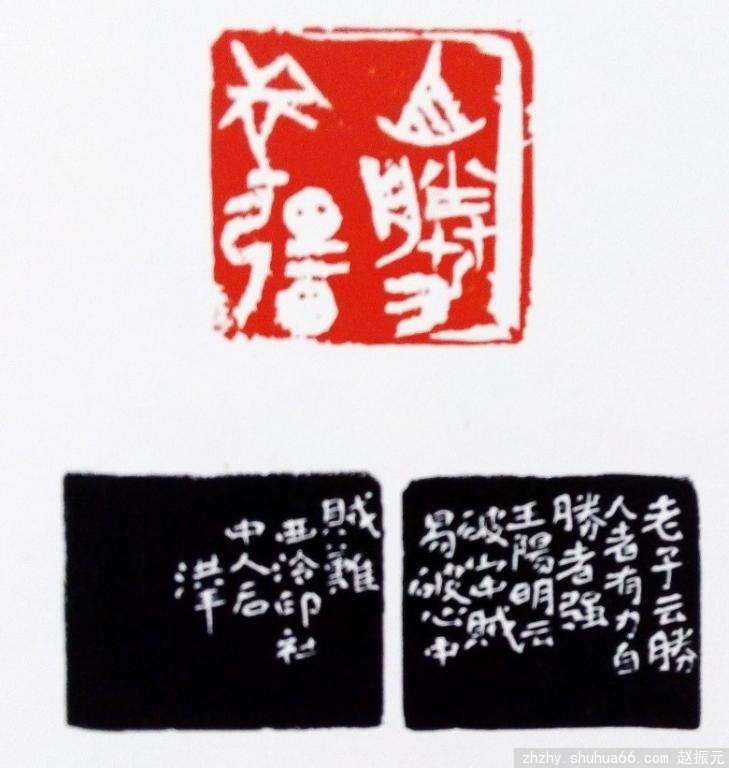 自勝
者強
老子云勝
人者有力自
勝者强
王陽明云
破山中賊
易破心中
賊難
西泠印社
中人
zhzhy.shuhua66.com 赵振元